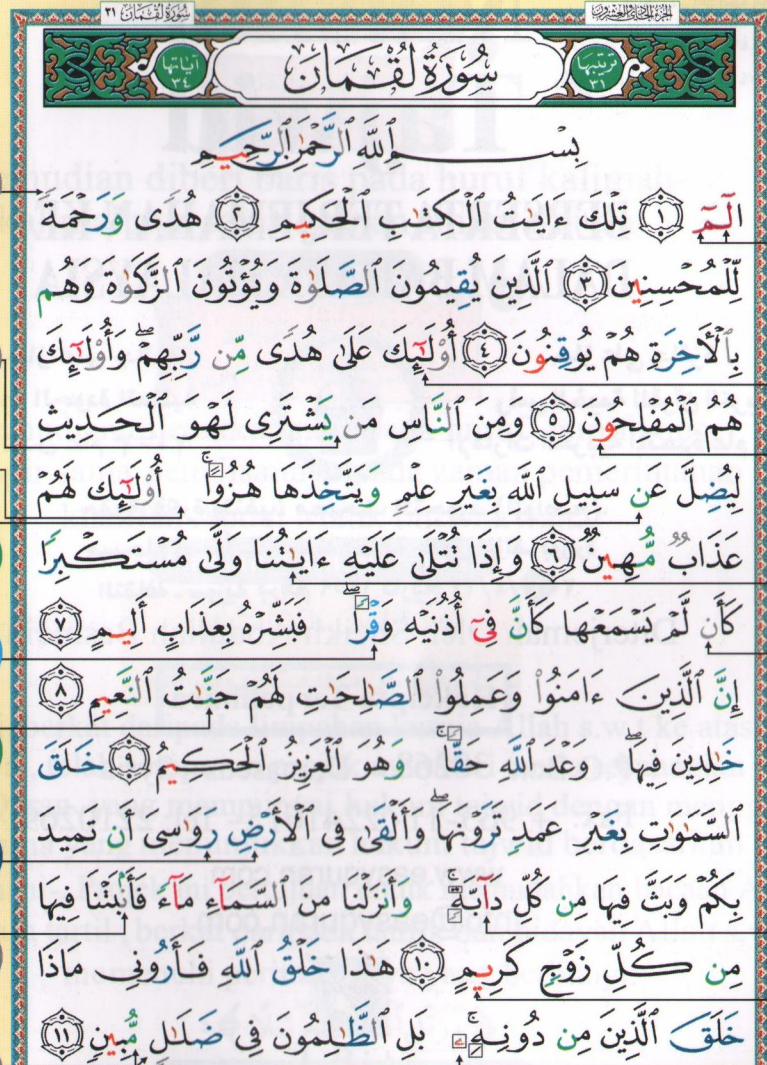 سُورَةُ لُقْمَان ٣١
الجزء الحادي والعشرون
آياتها ٣٤
سُورَةُ لُقْمَانَ
ترتيبها ٣١
بِسْمِ ٱللَّهِ ٱلرَّحْمَٰنِ ٱلرَّحِيمِ
الٓمٓ ﴿١﴾ تِلْكَ ءَايَٰتُ ٱلْكِتَٰبِ ٱلْحَكِيمِ ﴿٢﴾ هُدًى وَرَحْمَةً
لِّلْمُحْسِنِينَ ﴿٣﴾ ٱلَّذِينَ يُقِيمُونَ ٱلصَّلَوٰةَ وَيُؤْتُونَ ٱلزَّكَوٰةَ وَهُم
بِٱلْءَاخِرَةِ هُمْ يُوقِنُونَ ﴿٤﴾ أُو۟لَٰٓئِكَ عَلَىٰ هُدًى مِّن رَّبِّهِمْ ۖ وَأُو۟لَٰٓئِكَ
هُمُ ٱلْمُفْلِحُونَ ﴿٥﴾ وَمِنَ ٱلنَّاسِ مَن يَشْتَرِى لَهْوَ ٱلْحَدِيثِ
لِيُضِلَّ عَن سَبِيلِ ٱللَّهِ بِغَيْرِ عِلْمٍ وَيَتَّخِذَهَا هُزُوًا ۚ أُو۟لَٰٓئِكَ لَهُمْ
عَذَابٌ مُّهِينٌ ﴿٦﴾ وَإِذَا تُتْلَىٰ عَلَيْهِ ءَايَٰتُنَا وَلَّىٰ مُسْتَكْبِرًا
كَأَن لَّمْ يَسْمَعْهَا كَأَنَّ فِىٓ أُذُنَيْهِ وَقْرًا ۖ فَبَشِّرْهُ بِعَذَابٍ أَلِيمٍ ﴿٧﴾
إِنَّ ٱلَّذِينَ ءَامَنُوا۟ وَعَمِلُوا۟ ٱلصَّٰلِحَٰتِ لَهُمْ جَنَّٰتُ ٱلنَّعِيمِ ﴿٨﴾
خَٰلِدِينَ فِيهَا ۖ وَعْدَ ٱللَّهِ حَقًّا ۚ وَهُوَ ٱلْعَزِيزُ ٱلْحَكِيمُ ﴿٩﴾ خَلَقَ
ٱلسَّمَٰوَٰتِ بِغَيْرِ عَمَدٍ تَرَوْنَهَا ۖ وَأَلْقَىٰ فِى ٱلْأَرْضِ رَوَٰسِىَ أَن تَمِيدَ
بِكُمْ وَبَثَّ فِيهَا مِن كُلِّ دَآبَّةٍ ۚ وَأَنزَلْنَا مِنَ ٱلسَّمَآءِ مَآءً فَأَنۢبَتْنَا فِيهَا
مِن كُلِّ زَوْجٍ كَرِيمٍ ﴿١٠﴾ هَٰذَا خَلْقُ ٱللَّهِ فَأَرُونِى مَاذَا
خَلَقَ ٱلَّذِينَ مِن دُونِهِۦ ۚ بَلِ ٱلظَّٰلِمُونَ فِى ضَلَٰلٍ مُّبِينٍ ﴿١١﴾